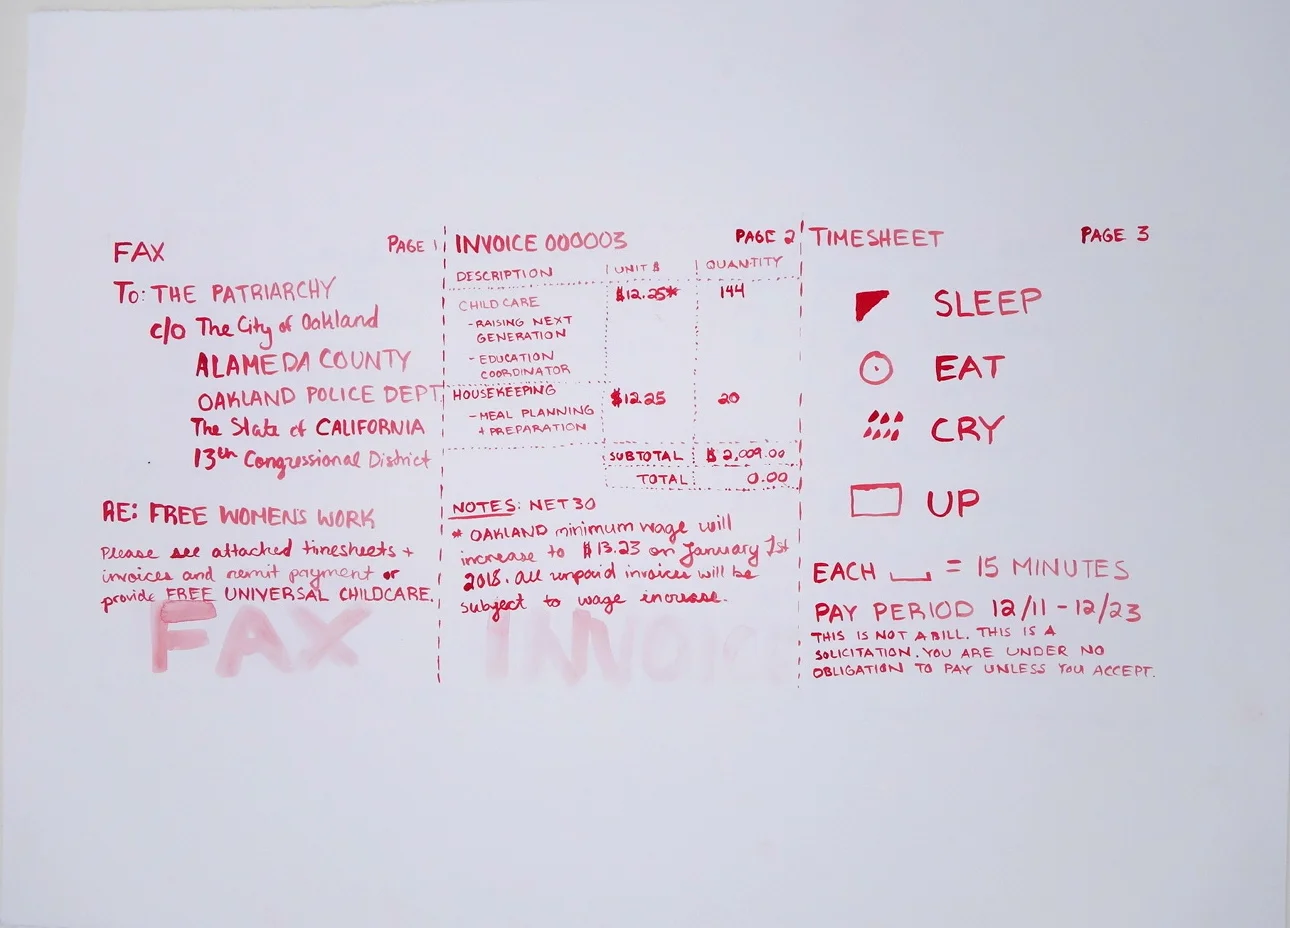 FAX PAGE 1
To: THE PATRIARCHY
c/o The City of Oakland
ALAMEDA COUNTY
OAKLAND POLICE DEPT
The State of CALIFORNIA
13th Congressional District
RE: FREE WOMENS WORK
Please see attached timesheets +
invoices and remit payment or
provide FREE UNIVERSAL CHILDCARE.
FAX
INVOICE 000003 PAGE 2
DESCRIPTION UNIT $ QUANTITY
CHILD CARE $12.25* 144
- RAISING NEXT
GENERATION
- EDUCATION
COORDINATOR
HOUSEKEEPING $12.25 20
- MEAL PLANNING
+ PREPARATION
SUBTOTAL $ 2,009.00
TOTAL 0.00
NOTES: NET 30
* OAKLAND minimum wage will
increase to $13.23 on January 1st
2018. All unpaid invoices will be
subject to wage increase.
INVOICE
TIMESHEET PAGE 3
SLEEP
EAT
CRY
UP
EACH = 15 MINUTES
PAY PERIOD 12/11 - 12/23
THIS IS NOT A BILL. THIS IS A
SOLICITATION. YOU ARE UNDER NO
OBLIGATION TO PAY UNLESS YOU ACCEPT.